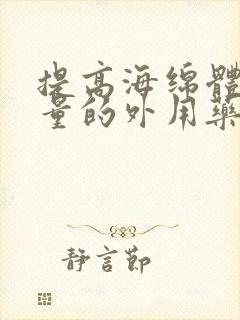 提高海绵體
量的外用藥
静言節